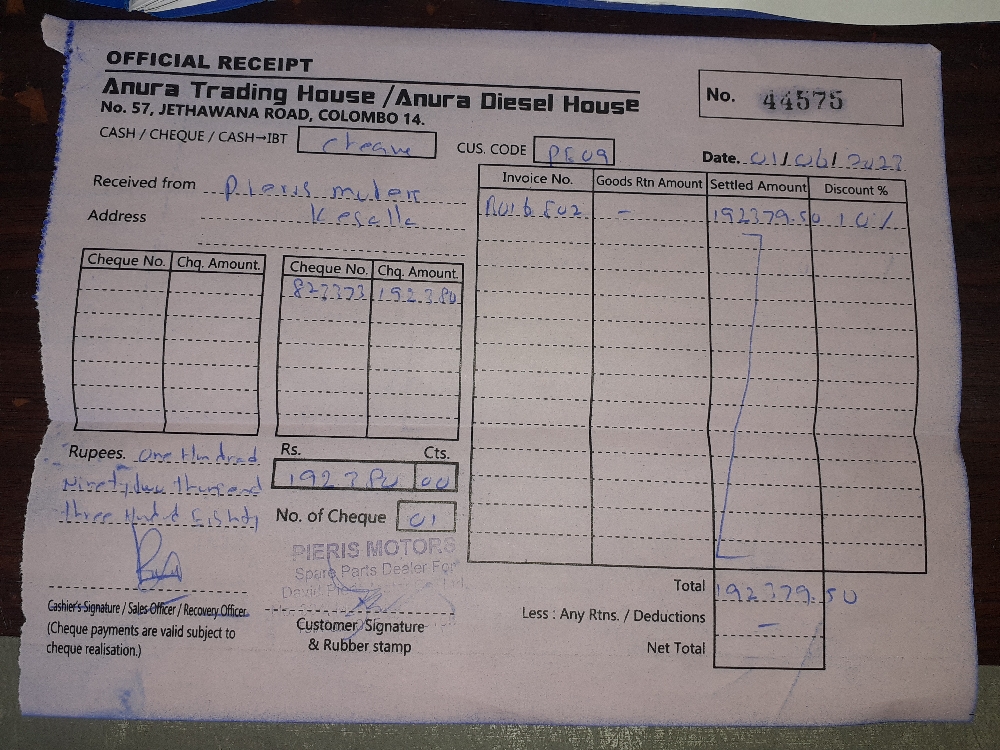 OFFICIAL RECEIPT
Anura Trading House /Anura Diesel House
No. 57, JETHAWANA ROAD, COLOMBO 14.
No. 44575
CASH / CHEQUE / CASH→IBT cheque
CUS. CODE PE09
Date. 01/06/2023
Received from Pieris
Address
Invoice No. Goods Rtn Amount Settled Amount Discount %
– 192379.50 10%
Cheque No. Chq. Amount.
Cheque No. Chq. Amount.
823373 192380
Rupees. One Hundred
Ninety two Thousand
Three Hundred Eighty
Rs. Cts.
192380 00
No. of Cheque 01
PIERIS MOTORS
Spare Parts Dealer For
Cashier's Signature / Sales Officer / Recovery Officer
(Cheque payments are valid subject to
cheque realisation.)
Customer Signature
& Rubber stamp
Total 192379.50
Less : Any Rtns. / Deductions –
Net Total